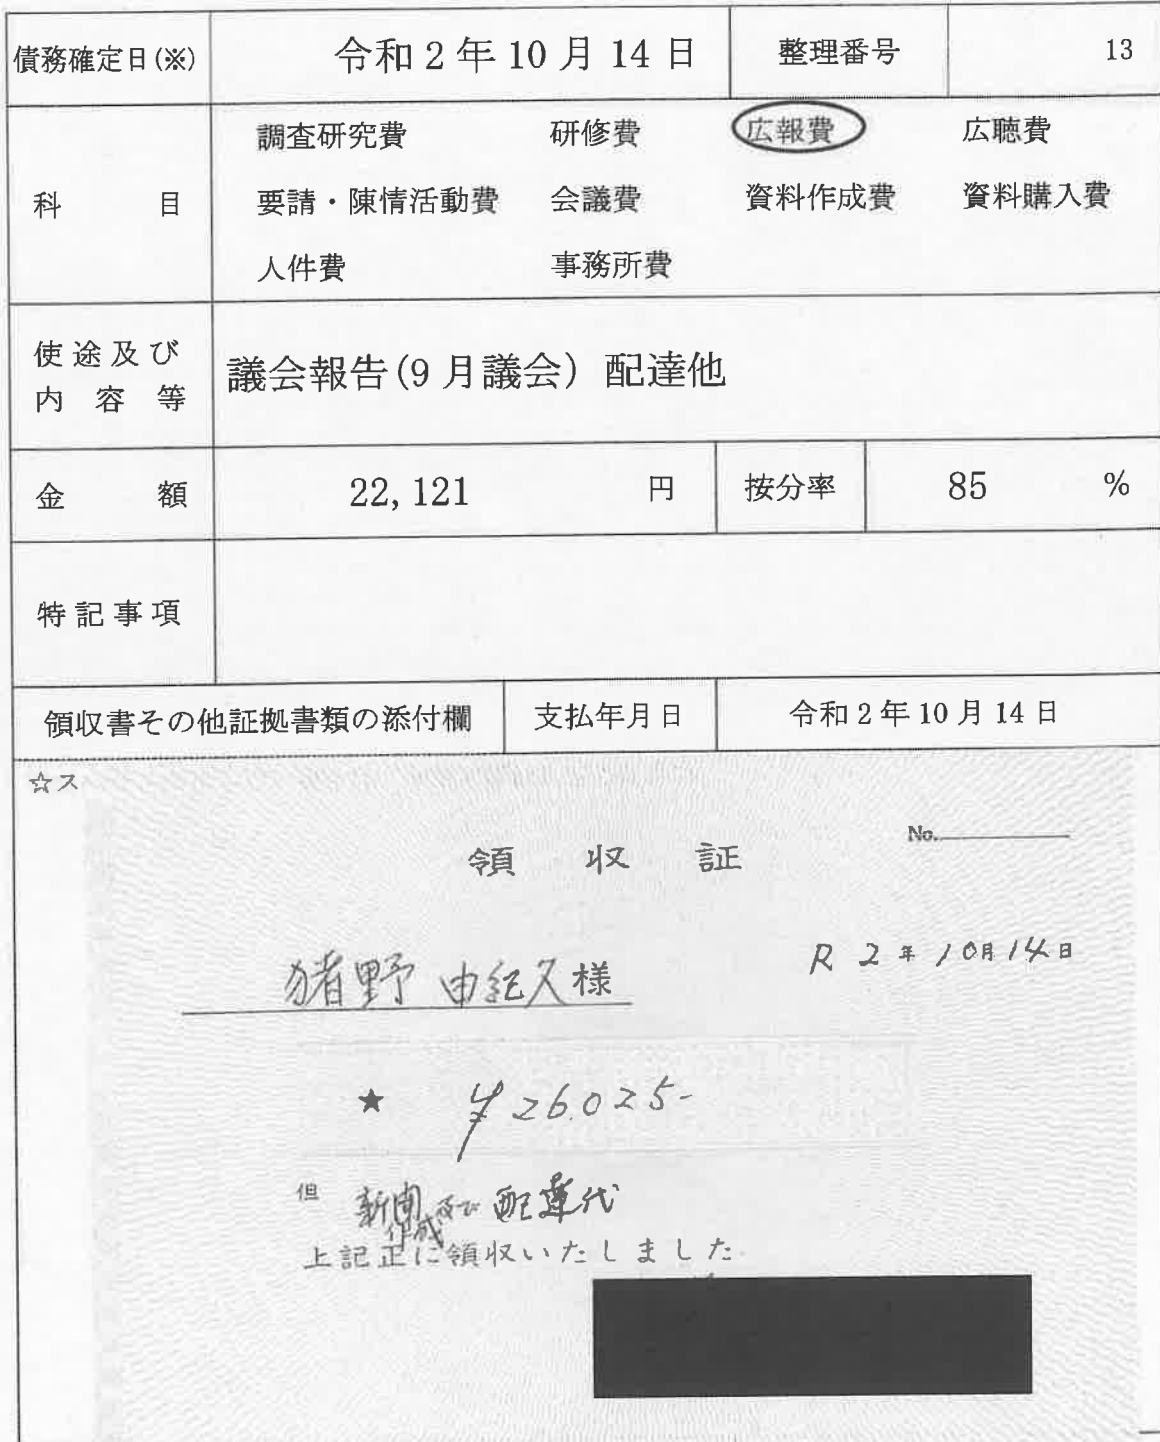 債務確定日(※) 令和2年10月14日 整理番号 13
科目 調査研究費 研修費 広報費 広聴費
要請・陳情活動費 会議費 資料作成費 資料購入費
人件費 事務所費
使途及び
内容等
議会報告(9月議会) 配達他
金額 22,121 円 按分率 85 %
特記事項
領収書その他証拠書類の添付欄 支払年月日 令和2年10月14日
☆ス
No.
領収証
R 2年10月14日
猪野 由紀久様
★ ¥26.025-
但 新聞作成及び配達代
上記正に領収いたしました